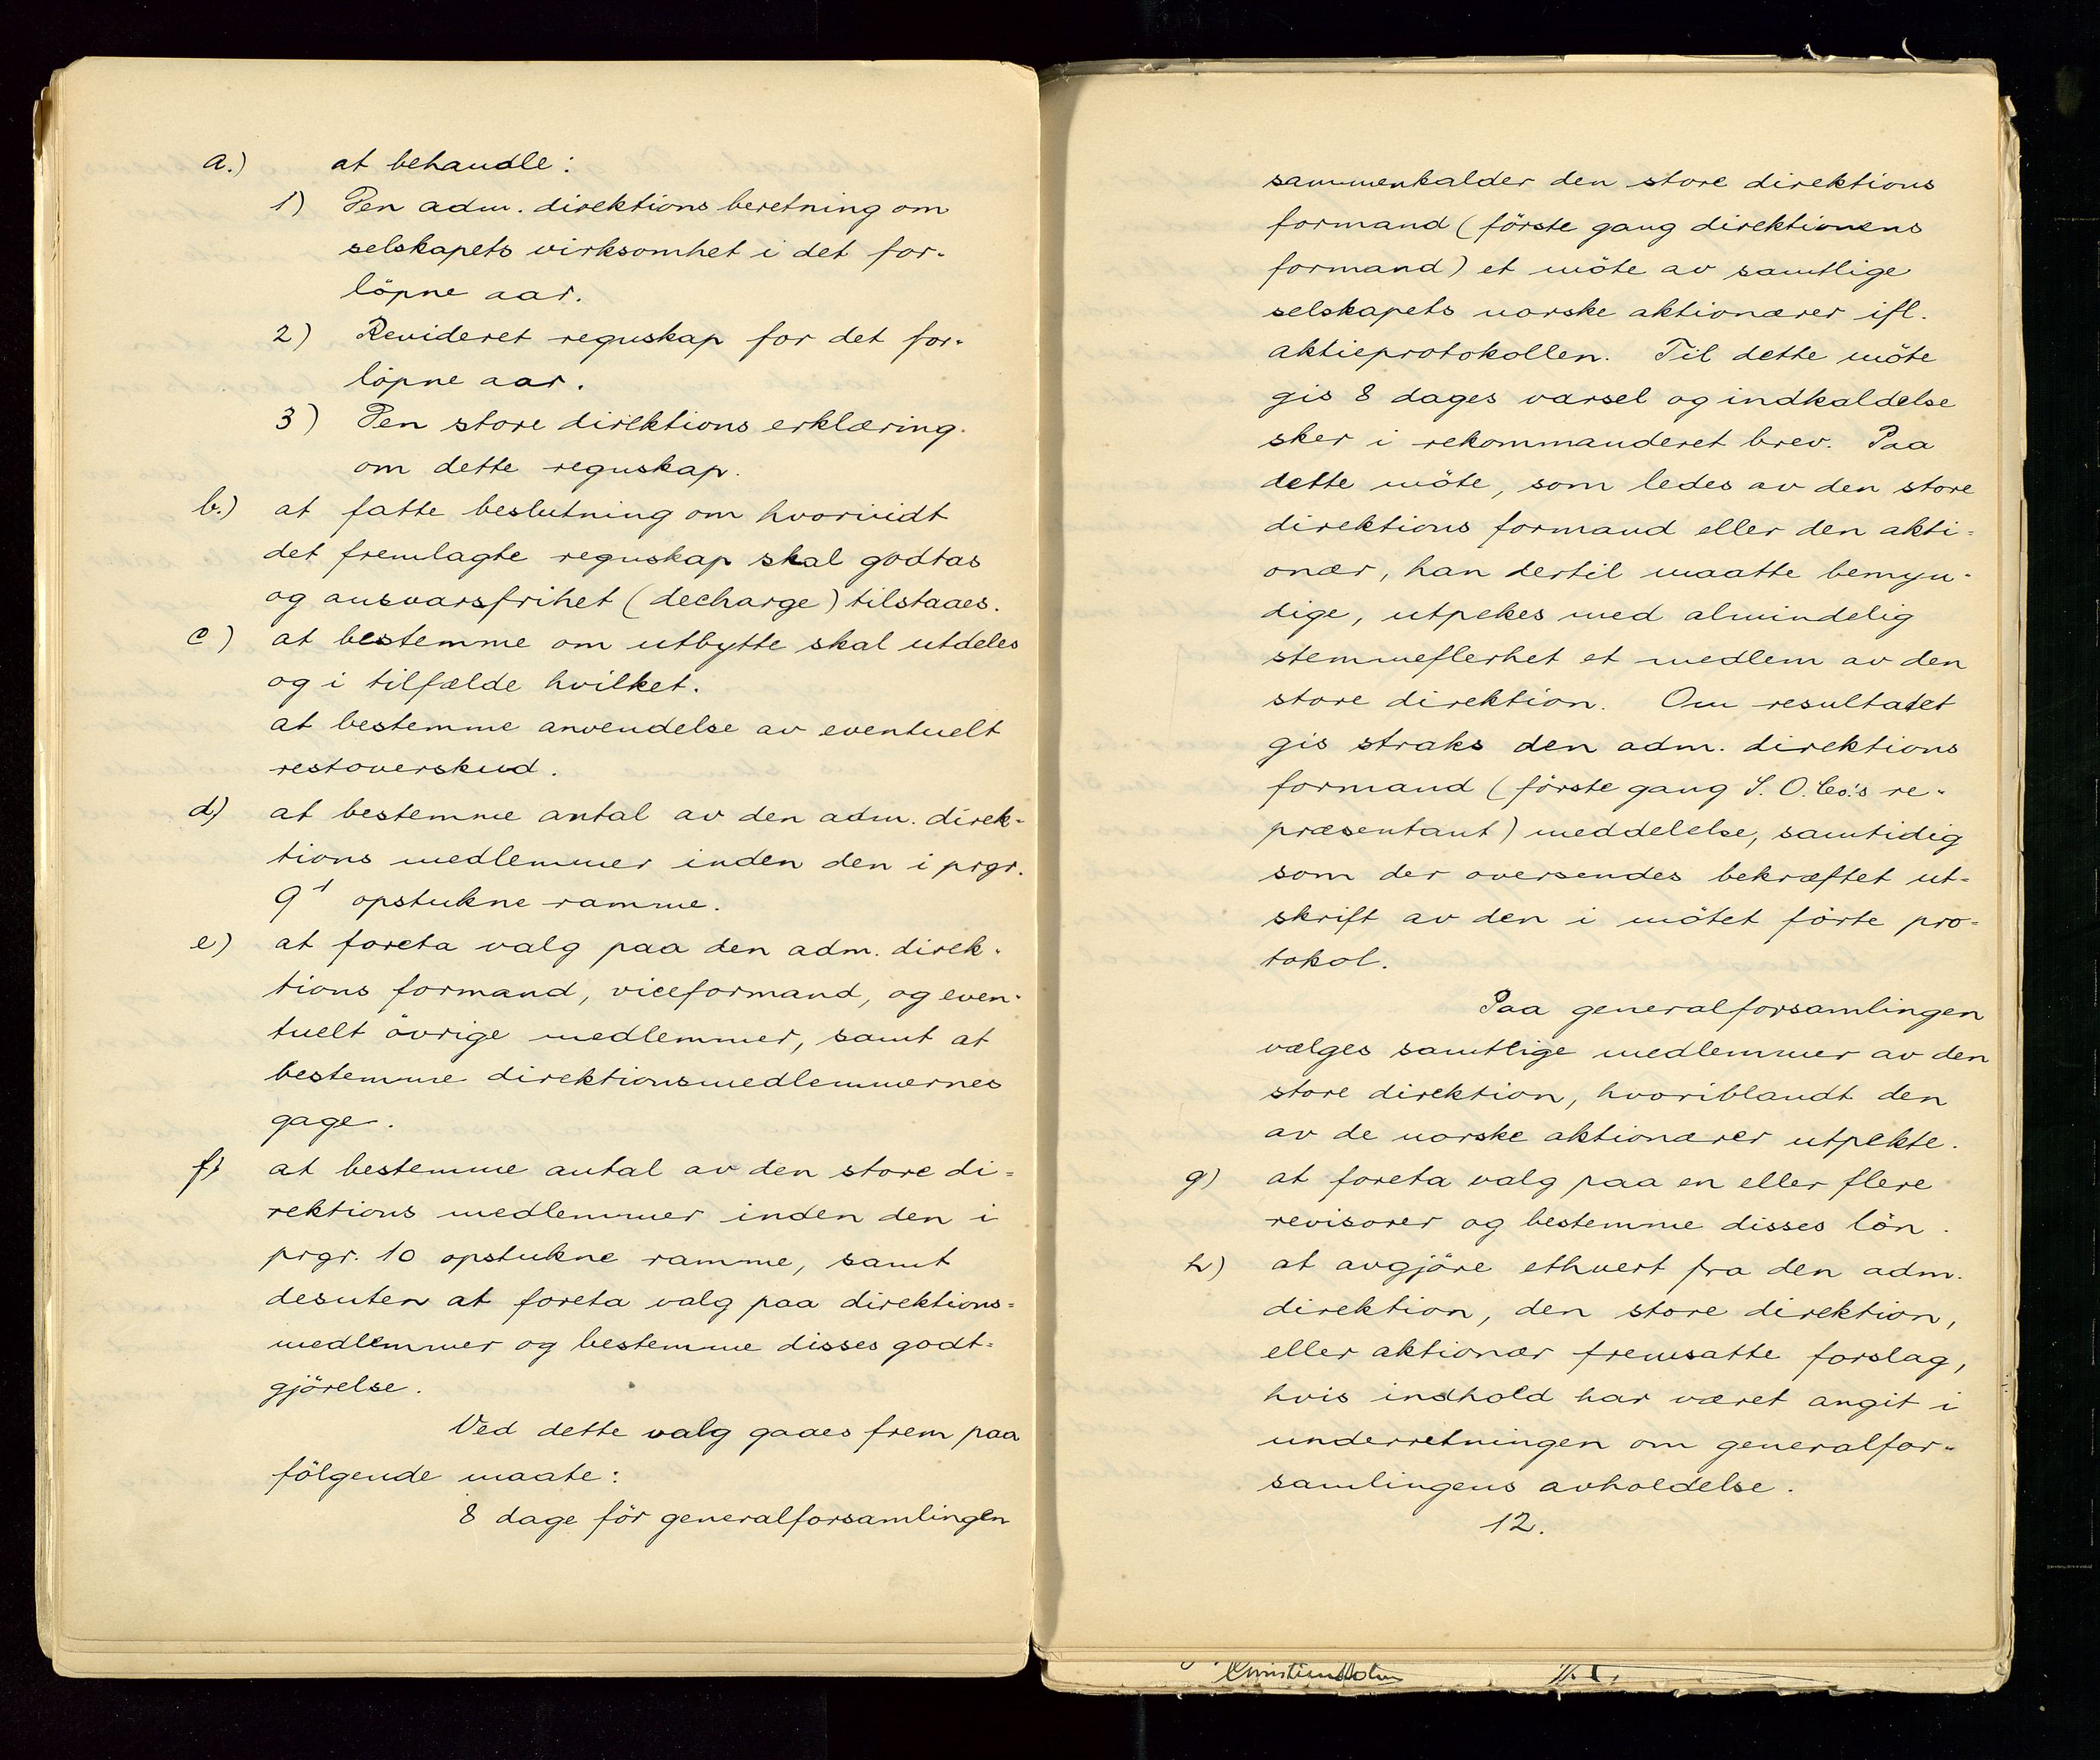 a.) at behandle:
1) Den adm. direktions beretning om
selskapets virksomhet i det for-
löpne aar.
2) Revideret regnskap for det for-
löpne aar.
3) Den store direktions erklæring
om dette regnskap.
b.) at fatte beslutning om hvorvidt
det fremlagte regnskap skal godtas
og ansvarsfrihet (decharge) tilstaaes.
c) at bestemme om utbytte skal utdeles
og i tilfælde hvilket.
at bestemme anvendelse av eventuelt
restoverskud.
d) at bestemme antal av den adm. direk-
tions medlemmer inden den i prgr.
9¹ opstukne ramme.
e) at foreta valg paa den adm. direk-
tions formand, viceformand, og even-
tuelt övrige medlemmer, samt at
bestemme direktionsmedlemmernes
gage.
f) at bestemme antal av den store di=
rektions medlemmer inden den i
prgr. 10 opstukne ramme, samt
desuten at foreta valg paa direktions=
medlemmer og bestemme disses godt=
gjörelse.
Ved dette valg gaaes frem paa
fölgende maate:
8 dage för generalforsamlingen
sammenkalder den store direktions
formand (förste gang direktionens
formand) et möte av samtlige
selskapets norske aktionærer ifl.
aktieprotokollen. Til dette möte
gis 8 dages varsel og indkaldelse
sker i rekommanderet brev. Paa
dette möte, som ledes av den store
direktions formand eller den akti=
onær, han dertil maatte bemyn-
dige, utpekes med almindelig
stemmeflerhet et medlem av den
store direktion. Om resultatet
gis straks den adm. direktions
formand (förste gang S. O. Co's re-
præsentant) meddelelse, samtidig
som der oversendes bekræftet ut=
skrift av den i mötet förte pro=
tokol.
Paa generalforsamlingen
vælges samtlige medlemmer av den
store direktion, hvoriblandt den
av de norske aktionærer utpekte.
g) at foreta valg paa en eller flere
revisorer og bestemme disses lön.
h) at avgjöre ethvert fra den adm.
direktion, den store direktion,
eller aktionær fremsatte forslag,
hvis indhold har været angit i
underretningen om generalfor-
samlingens avholdelse.
12.
Christian Holm